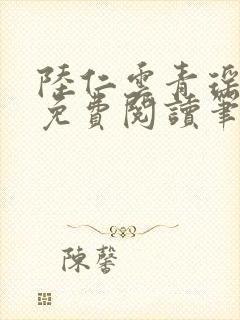 陸仁雲青瑤
免費閱讀筆
陳馨